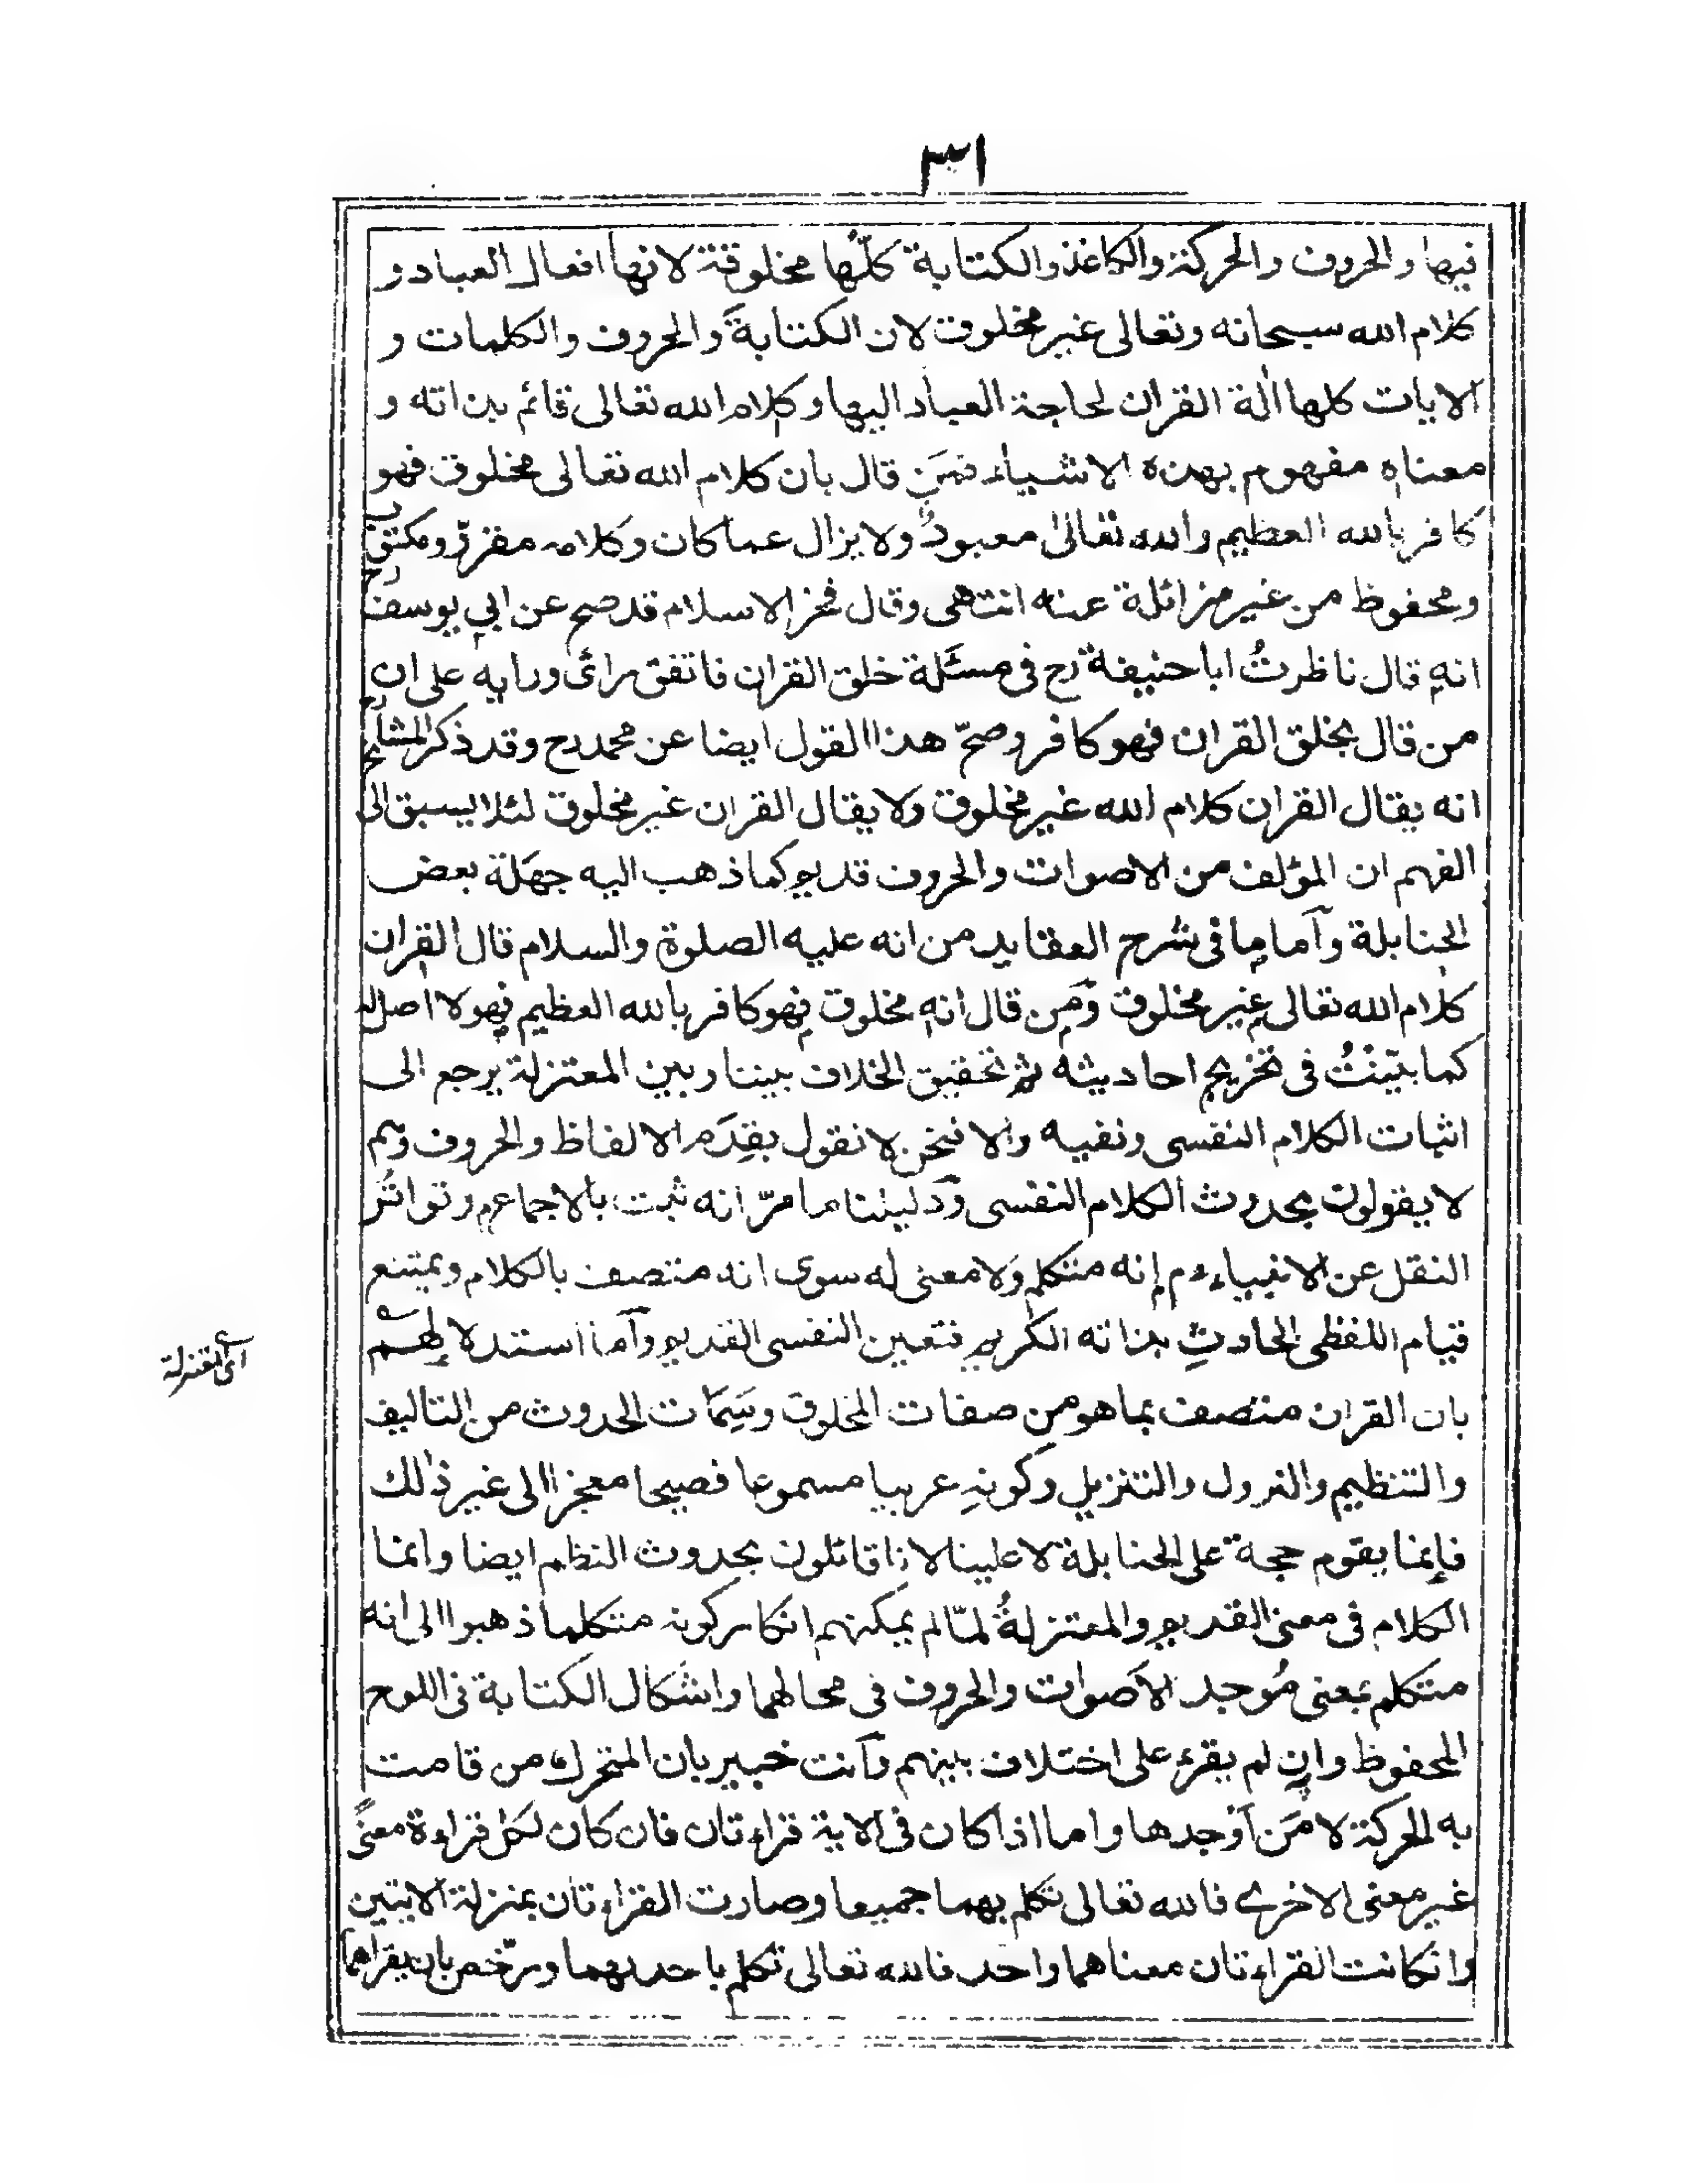 ٣١
فيها والحروف والحركة والكاغذ والكتابة كلّها مخلوقة لانها افعال العباد و
كلام الله سبحانه وتعالى غير مخلوق لان الكتابةَ والحروف والكلمات و
الايات كلها اٰلة القران لحاجة العباد اليها وكلام الله تعالى قائم بذاته و
معناه مفهوم بهذه الاشياء فمَن قال بان كلام الله تعالى مخلوق فهو
كافر بالله العظيم والله تعالىٰ معبودٌ ولا يزال عما كان وكلامه مقروّ ومكتوب
ومحفوظ من غير مزائلة عنه انتهى وقال فخر الاسلام قد صح عن ابي يوسف رح
انه قال ناظرتُ ابا حنيفة رح فى مسئَلة خلق القران فاتفق رائى ورايه على ان
من قال بخلق القران فهو كافر وصحّ هذا القول ايضا عن محمد رح وقد ذكر المشايخ رح
انه يقال القران كلام الله غير مخلوق ولا يقال القران غير مخلوق لئلا يسبق الى
الفهم ان المؤلف من الاصوات والحروف قديم كما ذهب اليه جهَلة بعض
الحنابلة وآما ما فى شرح العقايد من انه عليه الصلوة والسلام قال القران
كلام الله تعالى غير مخلوق ومَن قال انه مخلوق فهو كافر بالله العظيم فهو لا اصل له
كما بيّنْتُ فى تخريج احاديثه ثم تحقيق الخلاف بيننا وبين المعتزلة يرجع الى
اثبات الكلام النفسى ونفيه والا فنحن لا نقول بقِدَم الالفاظ والحروف وهم
لا يقولون بحدوث الكلام النفسى ودليلنا ما مرّ انه ثبت بالاجماع وتواتُر
النقل عن الانبياء م إنه متكلم ولا معنى له سوى انه متصف بالكلام ويمتنع
قيام اللفظى الحادثِ بذاته الكريم فتعين النفسى القديم وآما استدلالهم
اى المعتزلة
بان القران متصف بما هو من صفات المخلوق وسِمَات الحدوث من التاليف
والتنظيم والنزول والتنزيل وكونهِ عربيا مسموعا فصيحا معجزا الى غير ذٰلك
فإنما يقوم حجة على الحنابلة لا علينا لانا قائلون بحدوث النظم ايضا وانما
الكلام فى معنى القديم والمعتزلةُ لمّا لم يمكنهم انكار كونه متكلما ذهبوا الى انه
متكلم بمعنى مُوجد الاصوات والحروف فى محالهما واشكال الكتابة فى اللوح
المحفوظ وان لم يقرء على اختلاف بينهم وآنت خبير بان المتحرك من قامت
به الحركة لا مَن آوجدها واما اذا كان فى الاية قراءتان فان كان لكل قراءة معنًى
غير معنى الاخرى فالله تعالى تكلم بهما جميعا وصارت القراءتان بمنزلة الايتين
وانكانت القراءتان معناهما واحد فالله تعالى تكلم باحديهما ورخّص بان يقراهما